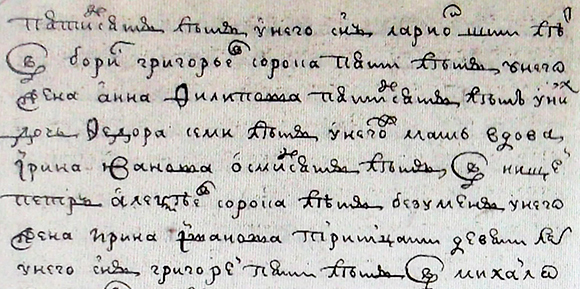 пятидесятъ лѣтъ у него сн҃ъ ларион шти лѣт
борис григорьев сорока пяти лѣтъ, у него
жена анна Филипова пятидесятъ лѣтъ у ни
дочь Ѳедора семи лѣтъ, у него мать вдова
ирина Иванова осмидесятъ лѣтъ, нищей
петръ алексѣев сорока лѣтъ безуменъ у него
жена ирина иванова тритцати девяти лѣт
у него сн҃ъ григорей пяти лѣтъ михайло